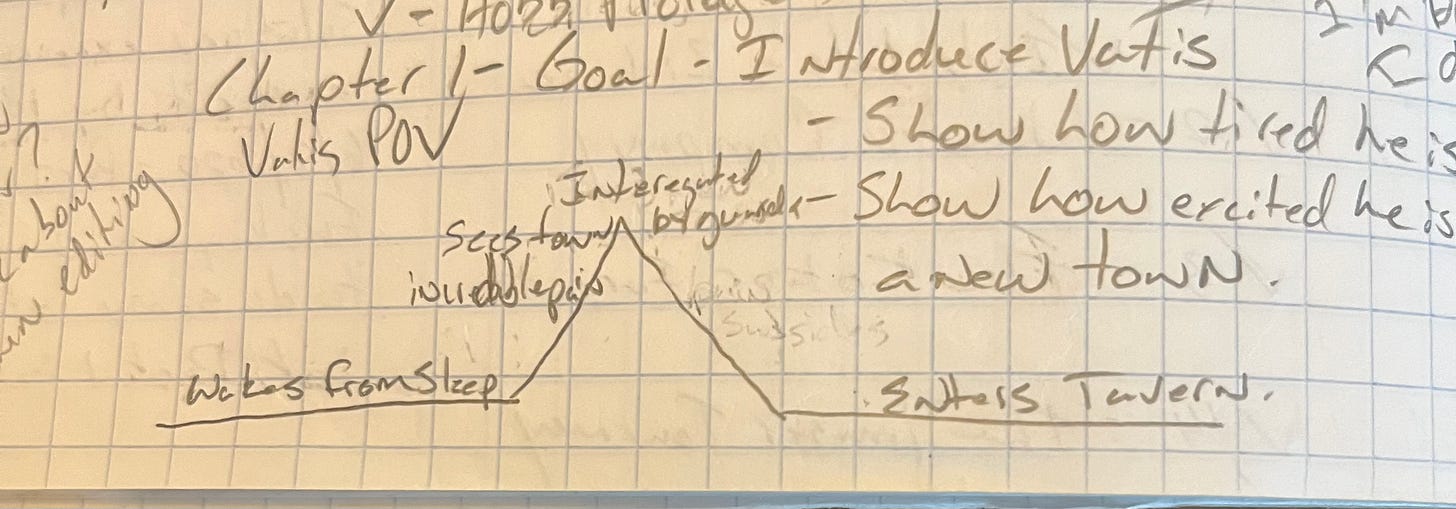 Chapter 1 - Goal - Introduce Vatis
Vatis POV
- Show how tired he is
- Show how excited he is
a new town.
Interegated
by guards
Sees town
incredible pain
pain
subsides
Wakes from Sleep
Enters Tavern.
about
editing